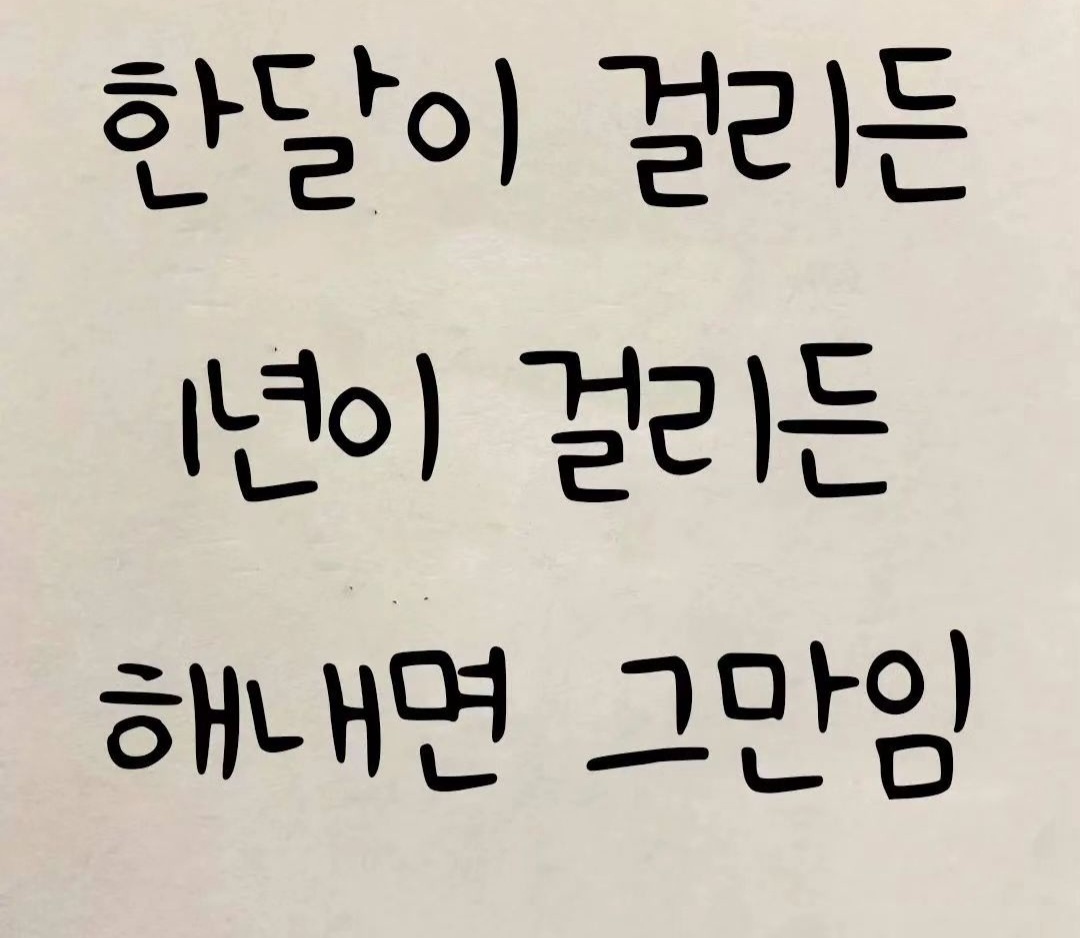 한달이 걸리든
1년이 걸리든
해내면 그만임